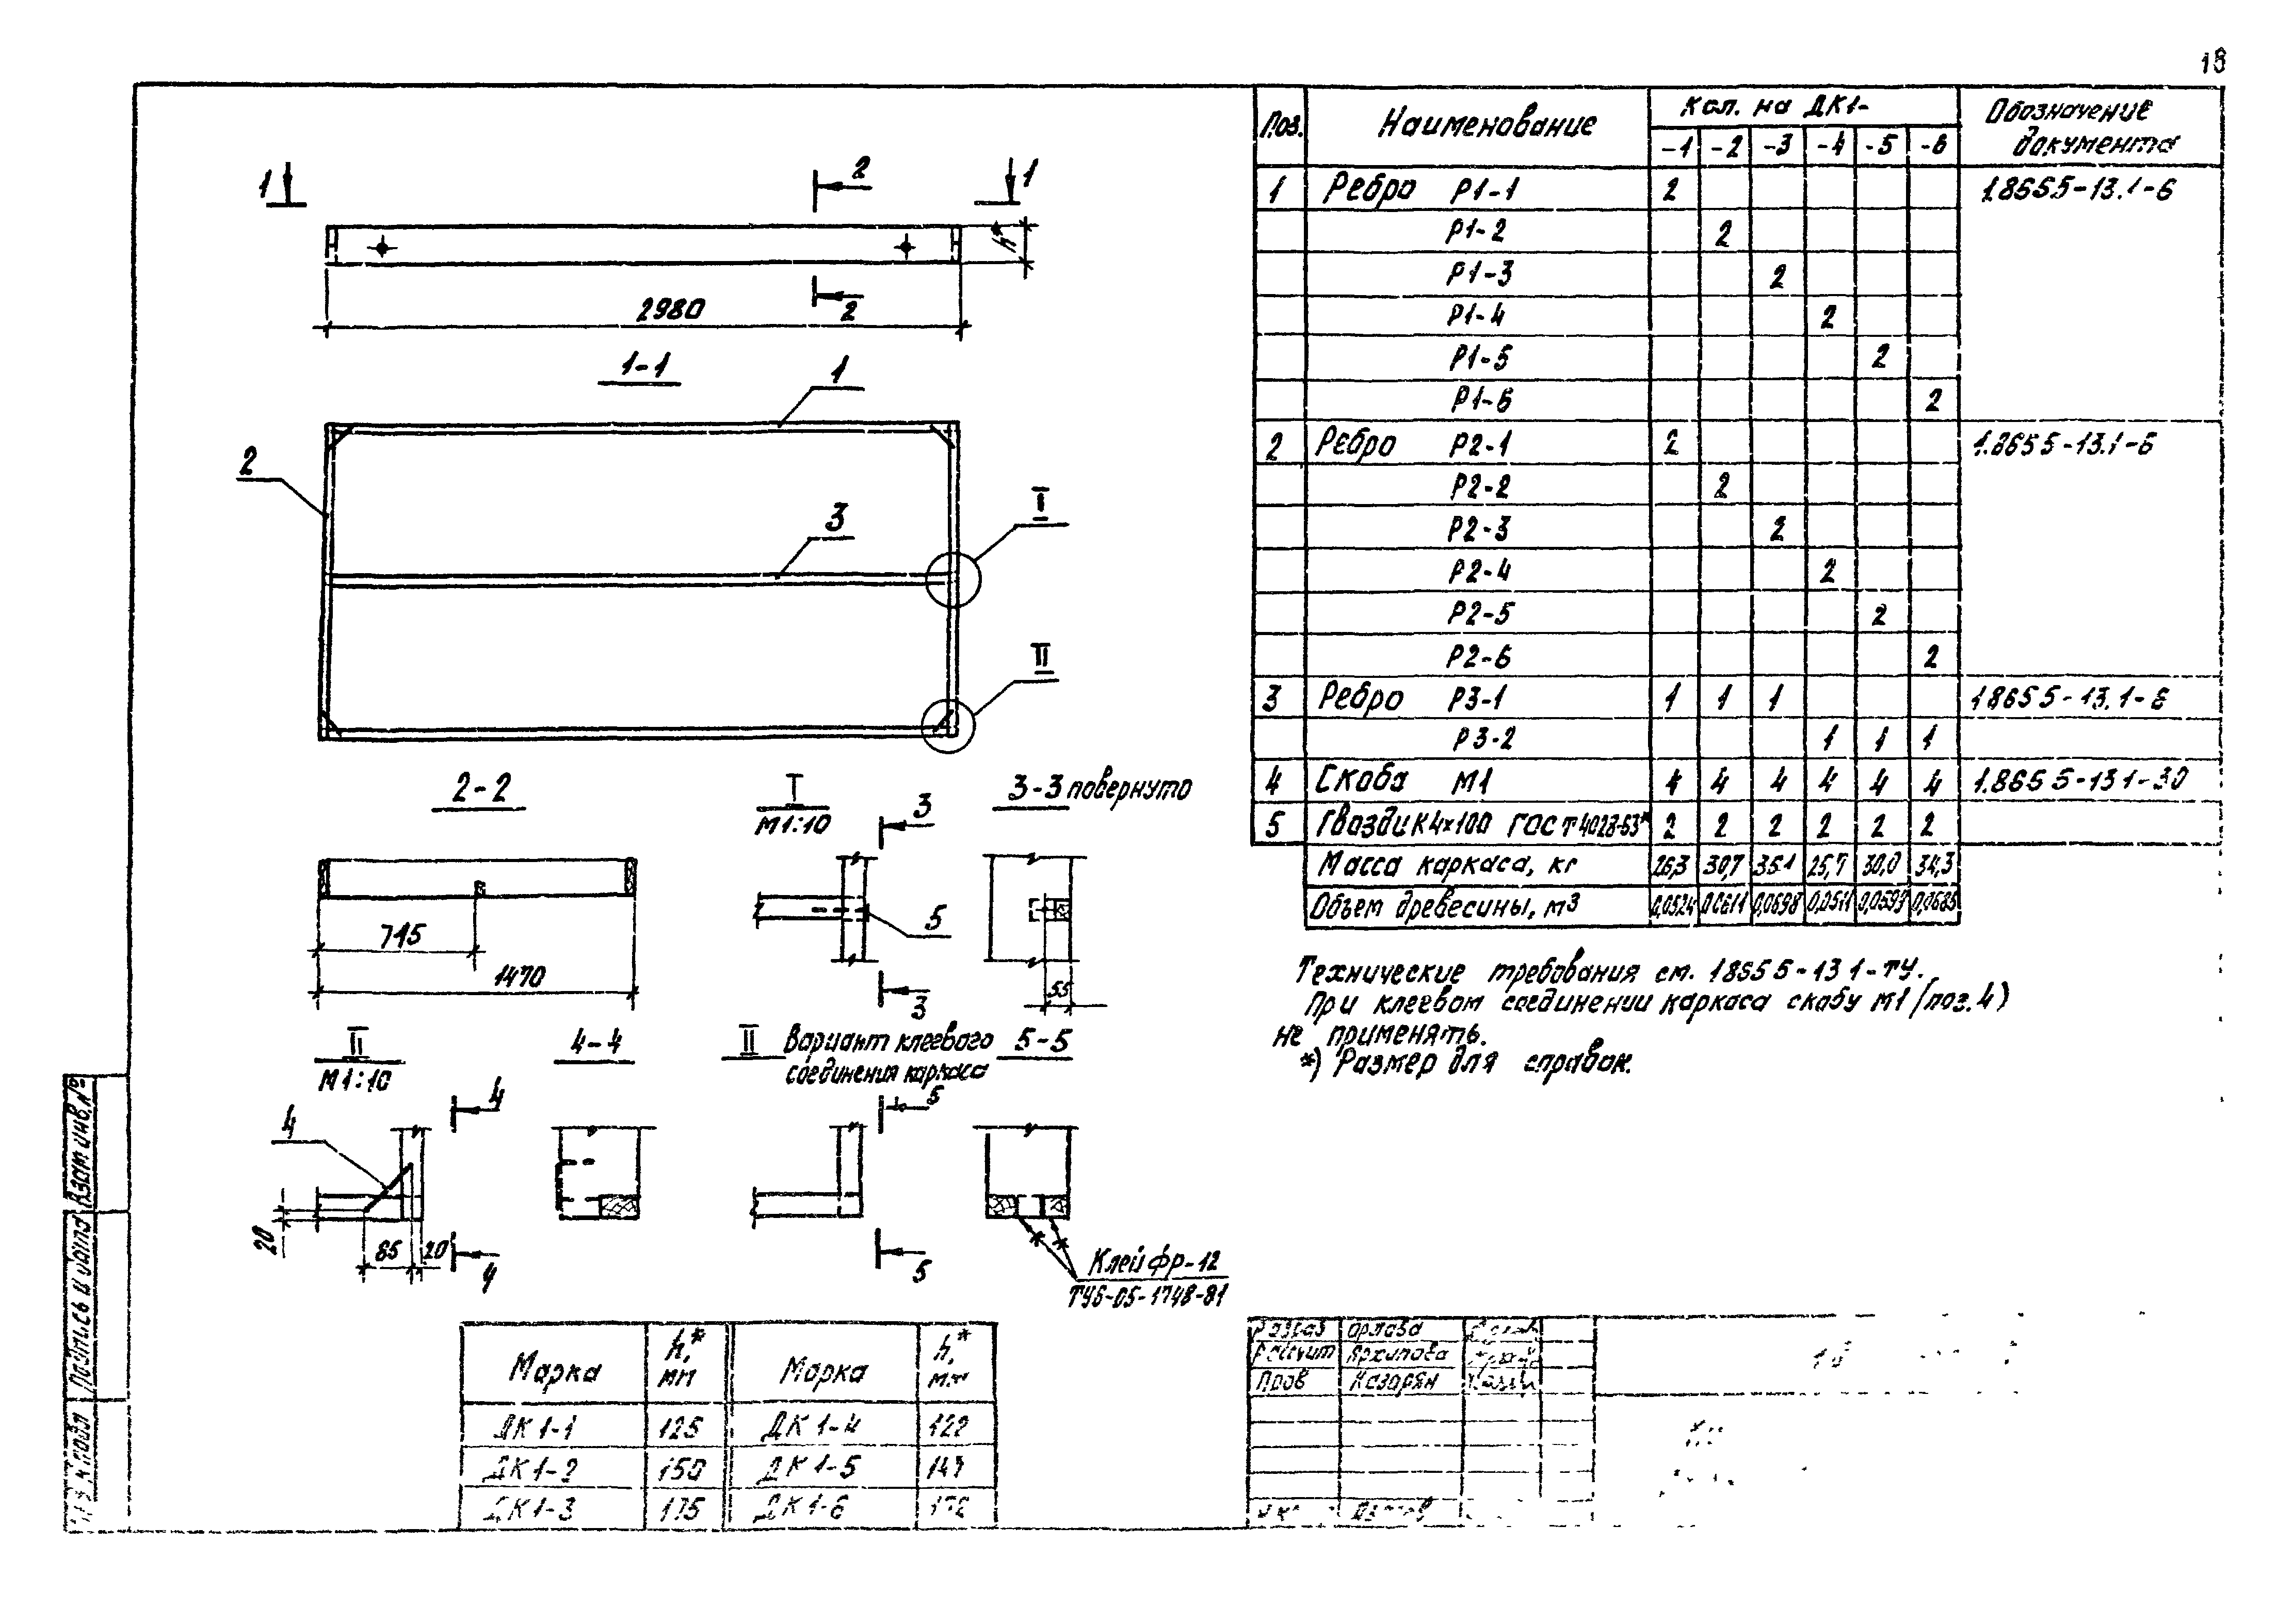 18
1 2 1
h*
2 2
2980
1-1 1
2
3 I
II
2-2 I М1:10 3 3-3 повернуто
745 5
1470 3 55
II М1:10 4-4 II Вариант клеевого соединения каркаса 5-5
4 4 5
20 85 20 4 5
Клей ФР-12
ТУ6-05-1748-81
Марка h,* мм Марка h,* мм
ДК1-1 125 ДК1-4 122
ДК1-2 150 ДК1-5
ДК1-3 175 ДК1-6 172
Поз. Наименование Кол. на ДК1- Обозначение документа
-1 -2 -3 -4 -5 -6
1 Ребро Р1-1 2 1.865.5-13.1-6
Р1-2 2
Р1-3 2
Р1-4 2
Р1-5 2
Р1-6 2
2 Ребро Р2-1 2 1.865 5-13.1-6
Р2-2 2
Р2-3 2
Р2-4 2
Р2-5 2
Р2-6 2
3 Ребро Р3-1 1 1 1 1 865 5-13.1-6
Р3-2 1 1 1
4 Скоба М1 4 4 4 4 4 4 1.865 5-13 1-30
5 Гвозди К4×100 ГОСТ 4028-63* 2 2 2 2 2 2
Масса каркаса, кг 26,3 30,7 35.1 25,7 30,0 34,3
Объем древесины, м3 0,0524 0,0611 0,0698 0,0511 0,0685
Технические требования см. 1.865 5-13 1-ТУ.
При клеевом соединении каркаса скобу М1 (поз. 4)
не применять.
*) Размер для справок.
Разраб Орлова
Рассчит Архипова
Пров Казарян
Взам инв.№
Подпись и дата
подл